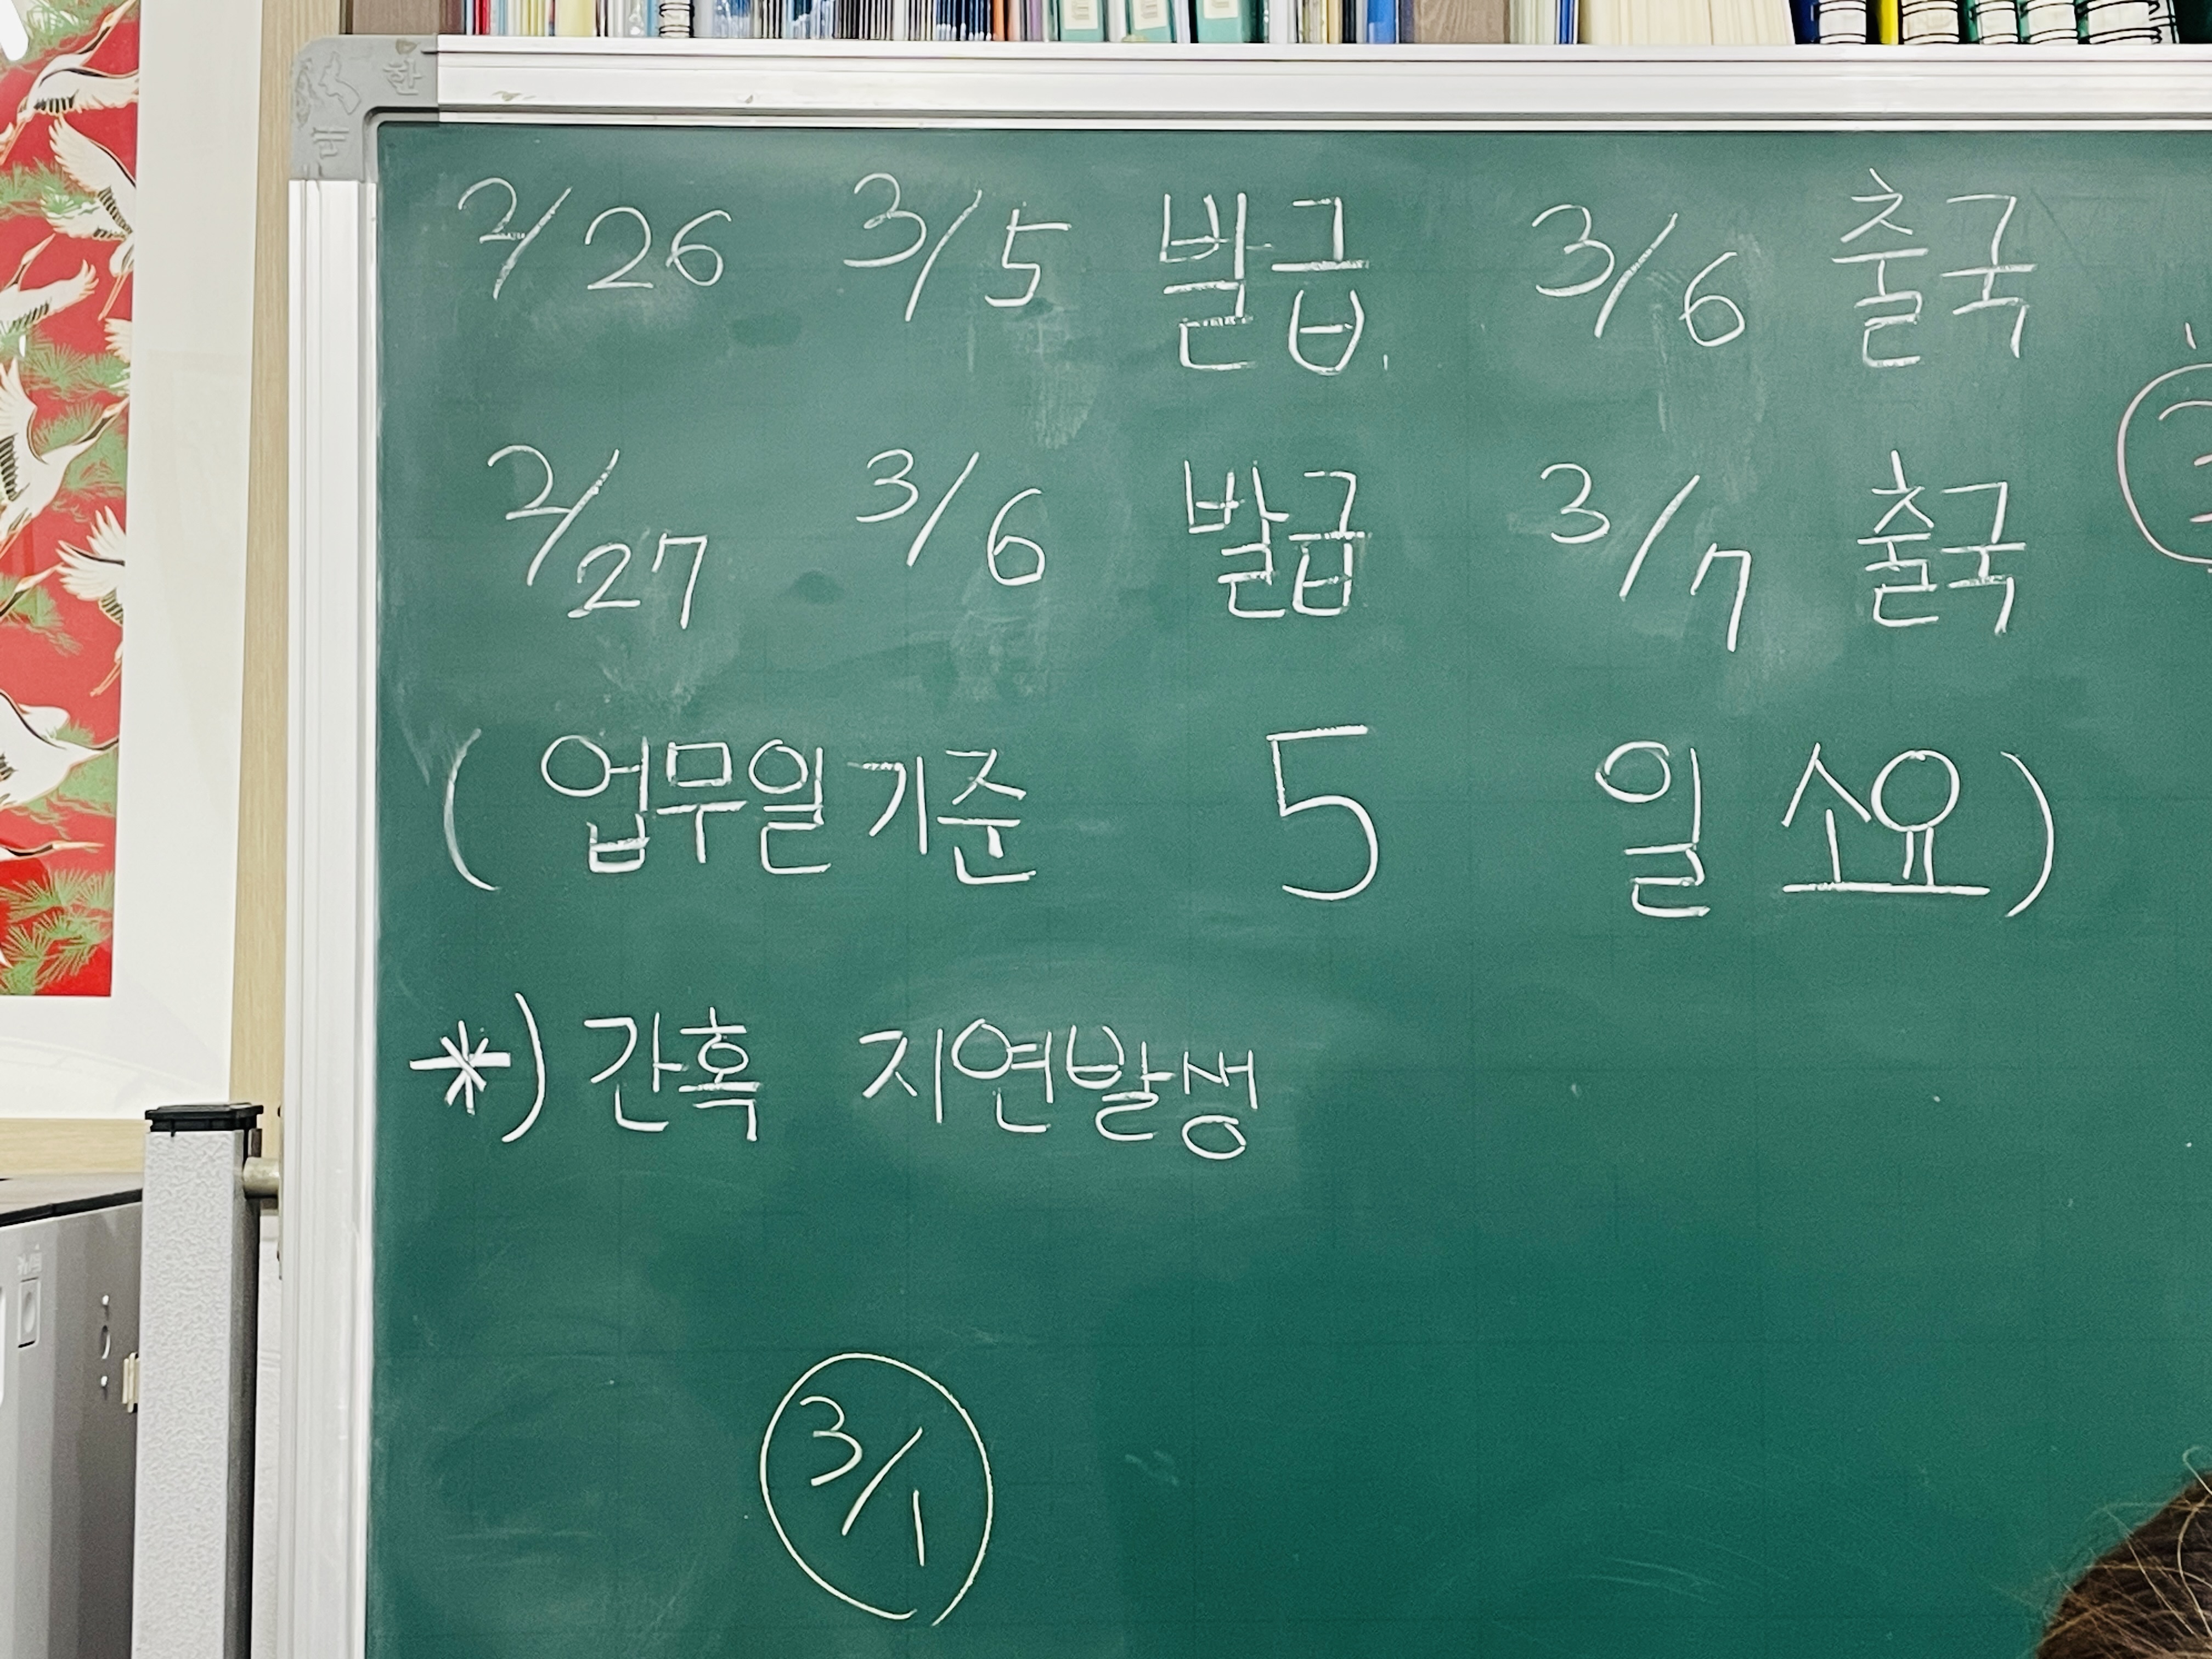 2/26 3/5 발급 3/6 출국
2/27 3/6 발급 3/7 출국
( 업무일기준 5 일 소요 )
*) 간혹 지연발생
3/1